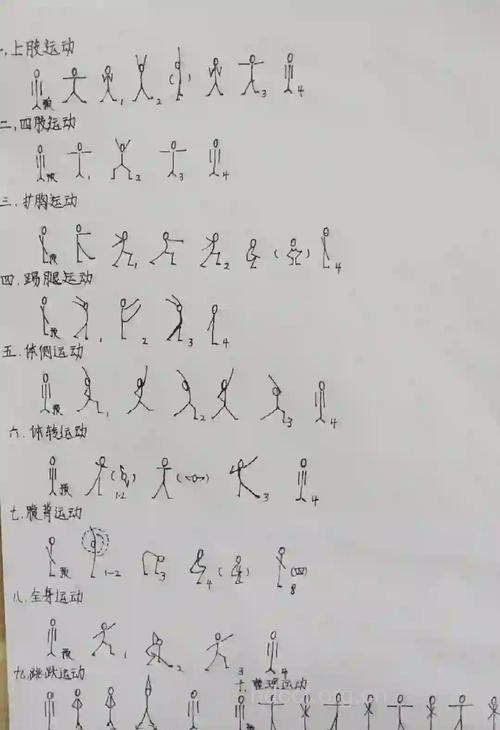 一,上肢运动
预 1 2 ( ) 3 4
二,四肢运动
预 1 2 3 4
三.扩胸运动
预 1 2 ( ) 4
四.踢腿运动
预 1 2 3 4
五.体侧运动
预 2 3 4
六.体转运动
预 ( ) 1-2 ( ) 3 4
七.腹背运动
预 1-2 3 4 ( ) (四) 8
八.全身运动
预 1 2 3 4
九.跳跃运动 十.整理运动